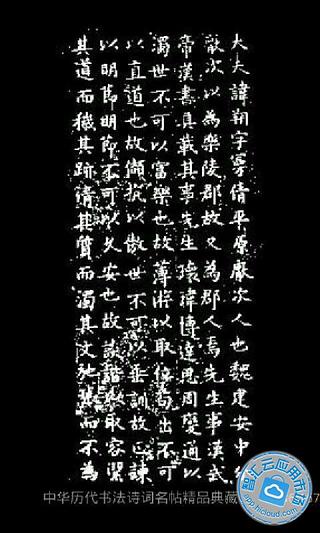 大夫諱朔字曼倩平原厭次人也魏建安中分
厭次以為樂陵郡故又為郡人焉先生事漢武
帝漢書具載其事先生瓌瑋博達思周變通以
濁世不可以富樂也故薄游以取位苟出不可
以直道也故頡抗以傲世不可以垂訓故正諫
以明節明節不可以久安也故談諧以取容潔
其道而穢其跡清其質而濁其文弛張而不為
中华历代书法诗词名帖精品典藏
智汇云应用市场
app.hicloud.com